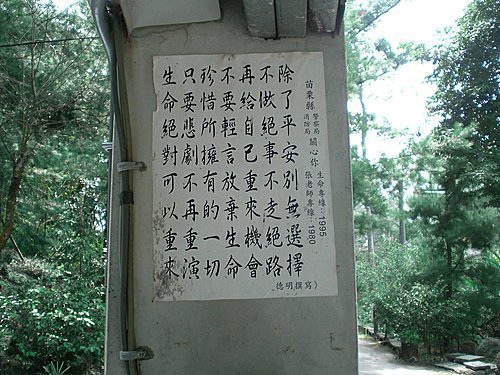 苗栗縣 警察局 消防局 關心你 生命專線:1995 張老師專線:1980
除了平安別無選擇
不做絕事不走絕路
再給自己重來機會
不要輕言放棄生命
珍惜所擁有的一切
只要悲劇不再重演
生命絕對可以重來
(德明撰寫)